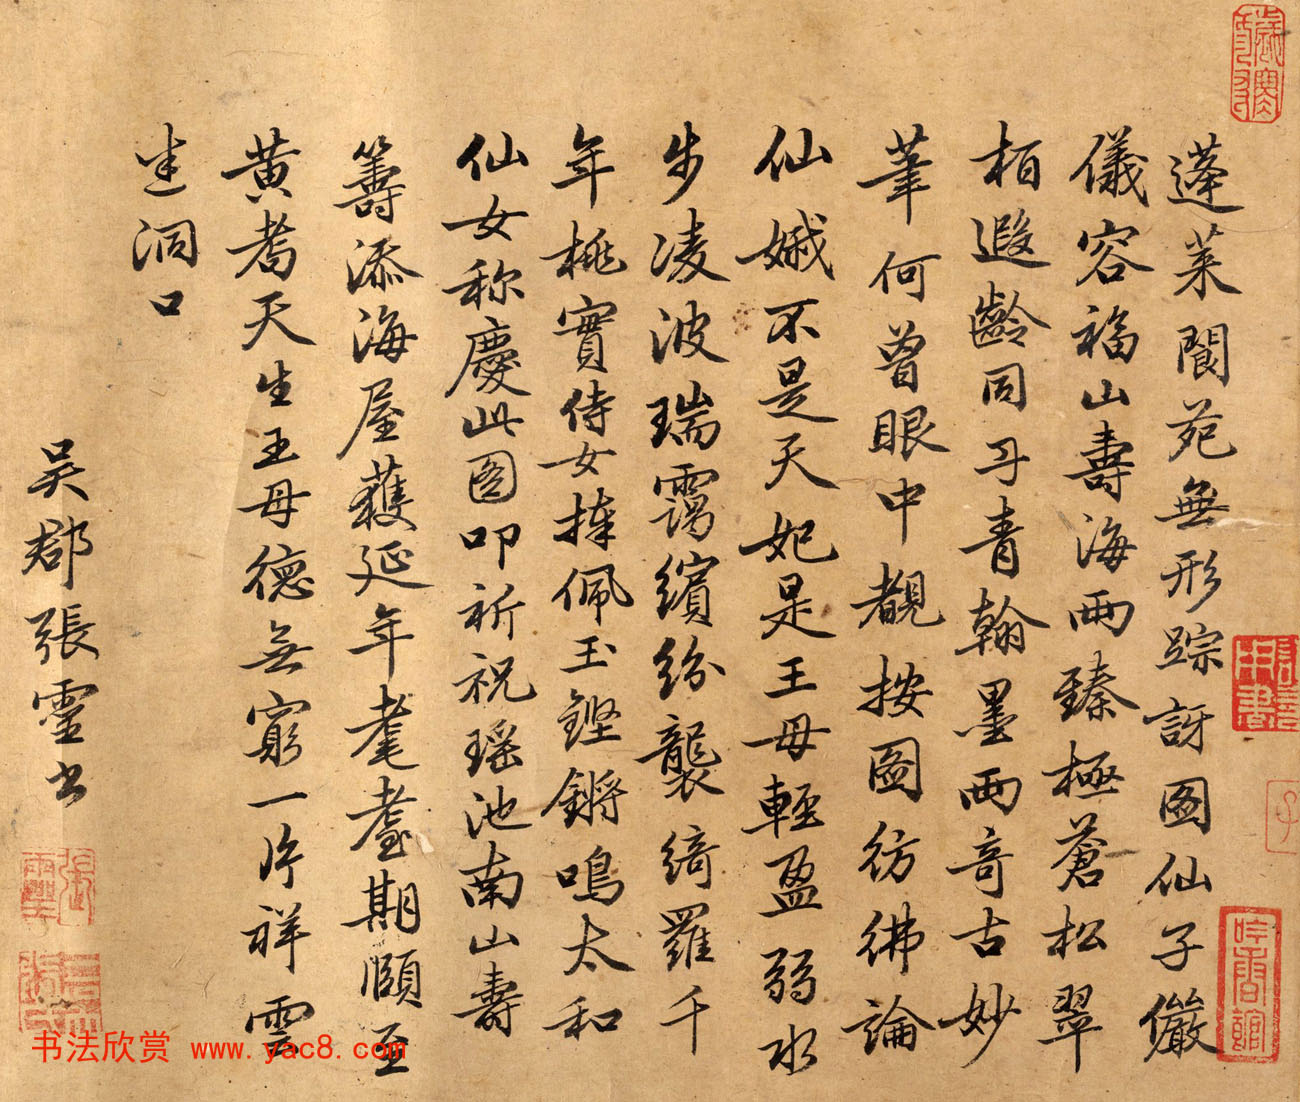 蓬萊閬苑無形踪訝图仙子儼
儀容福山壽海兩臻極蒼松翠
栢遐齡同丹青翰墨兩奇古妙
筆何曾眼中覩按圖彷彿論
仙娥不是天妃是王母輕盈弱水
步凌波瑞靄繽紛襲綺羅千
年桃實侍女捧佩玉鏗鏘鳴太和
仙女称慶此图叩祈祝瑶池南山壽
籌添海屋獲延年耄耋期頤至
黄耇天生王母德無窮一片祥雲
迷洞口
吴郡張靈书
吟香館
張靈
书法欣赏 www.yac8.com